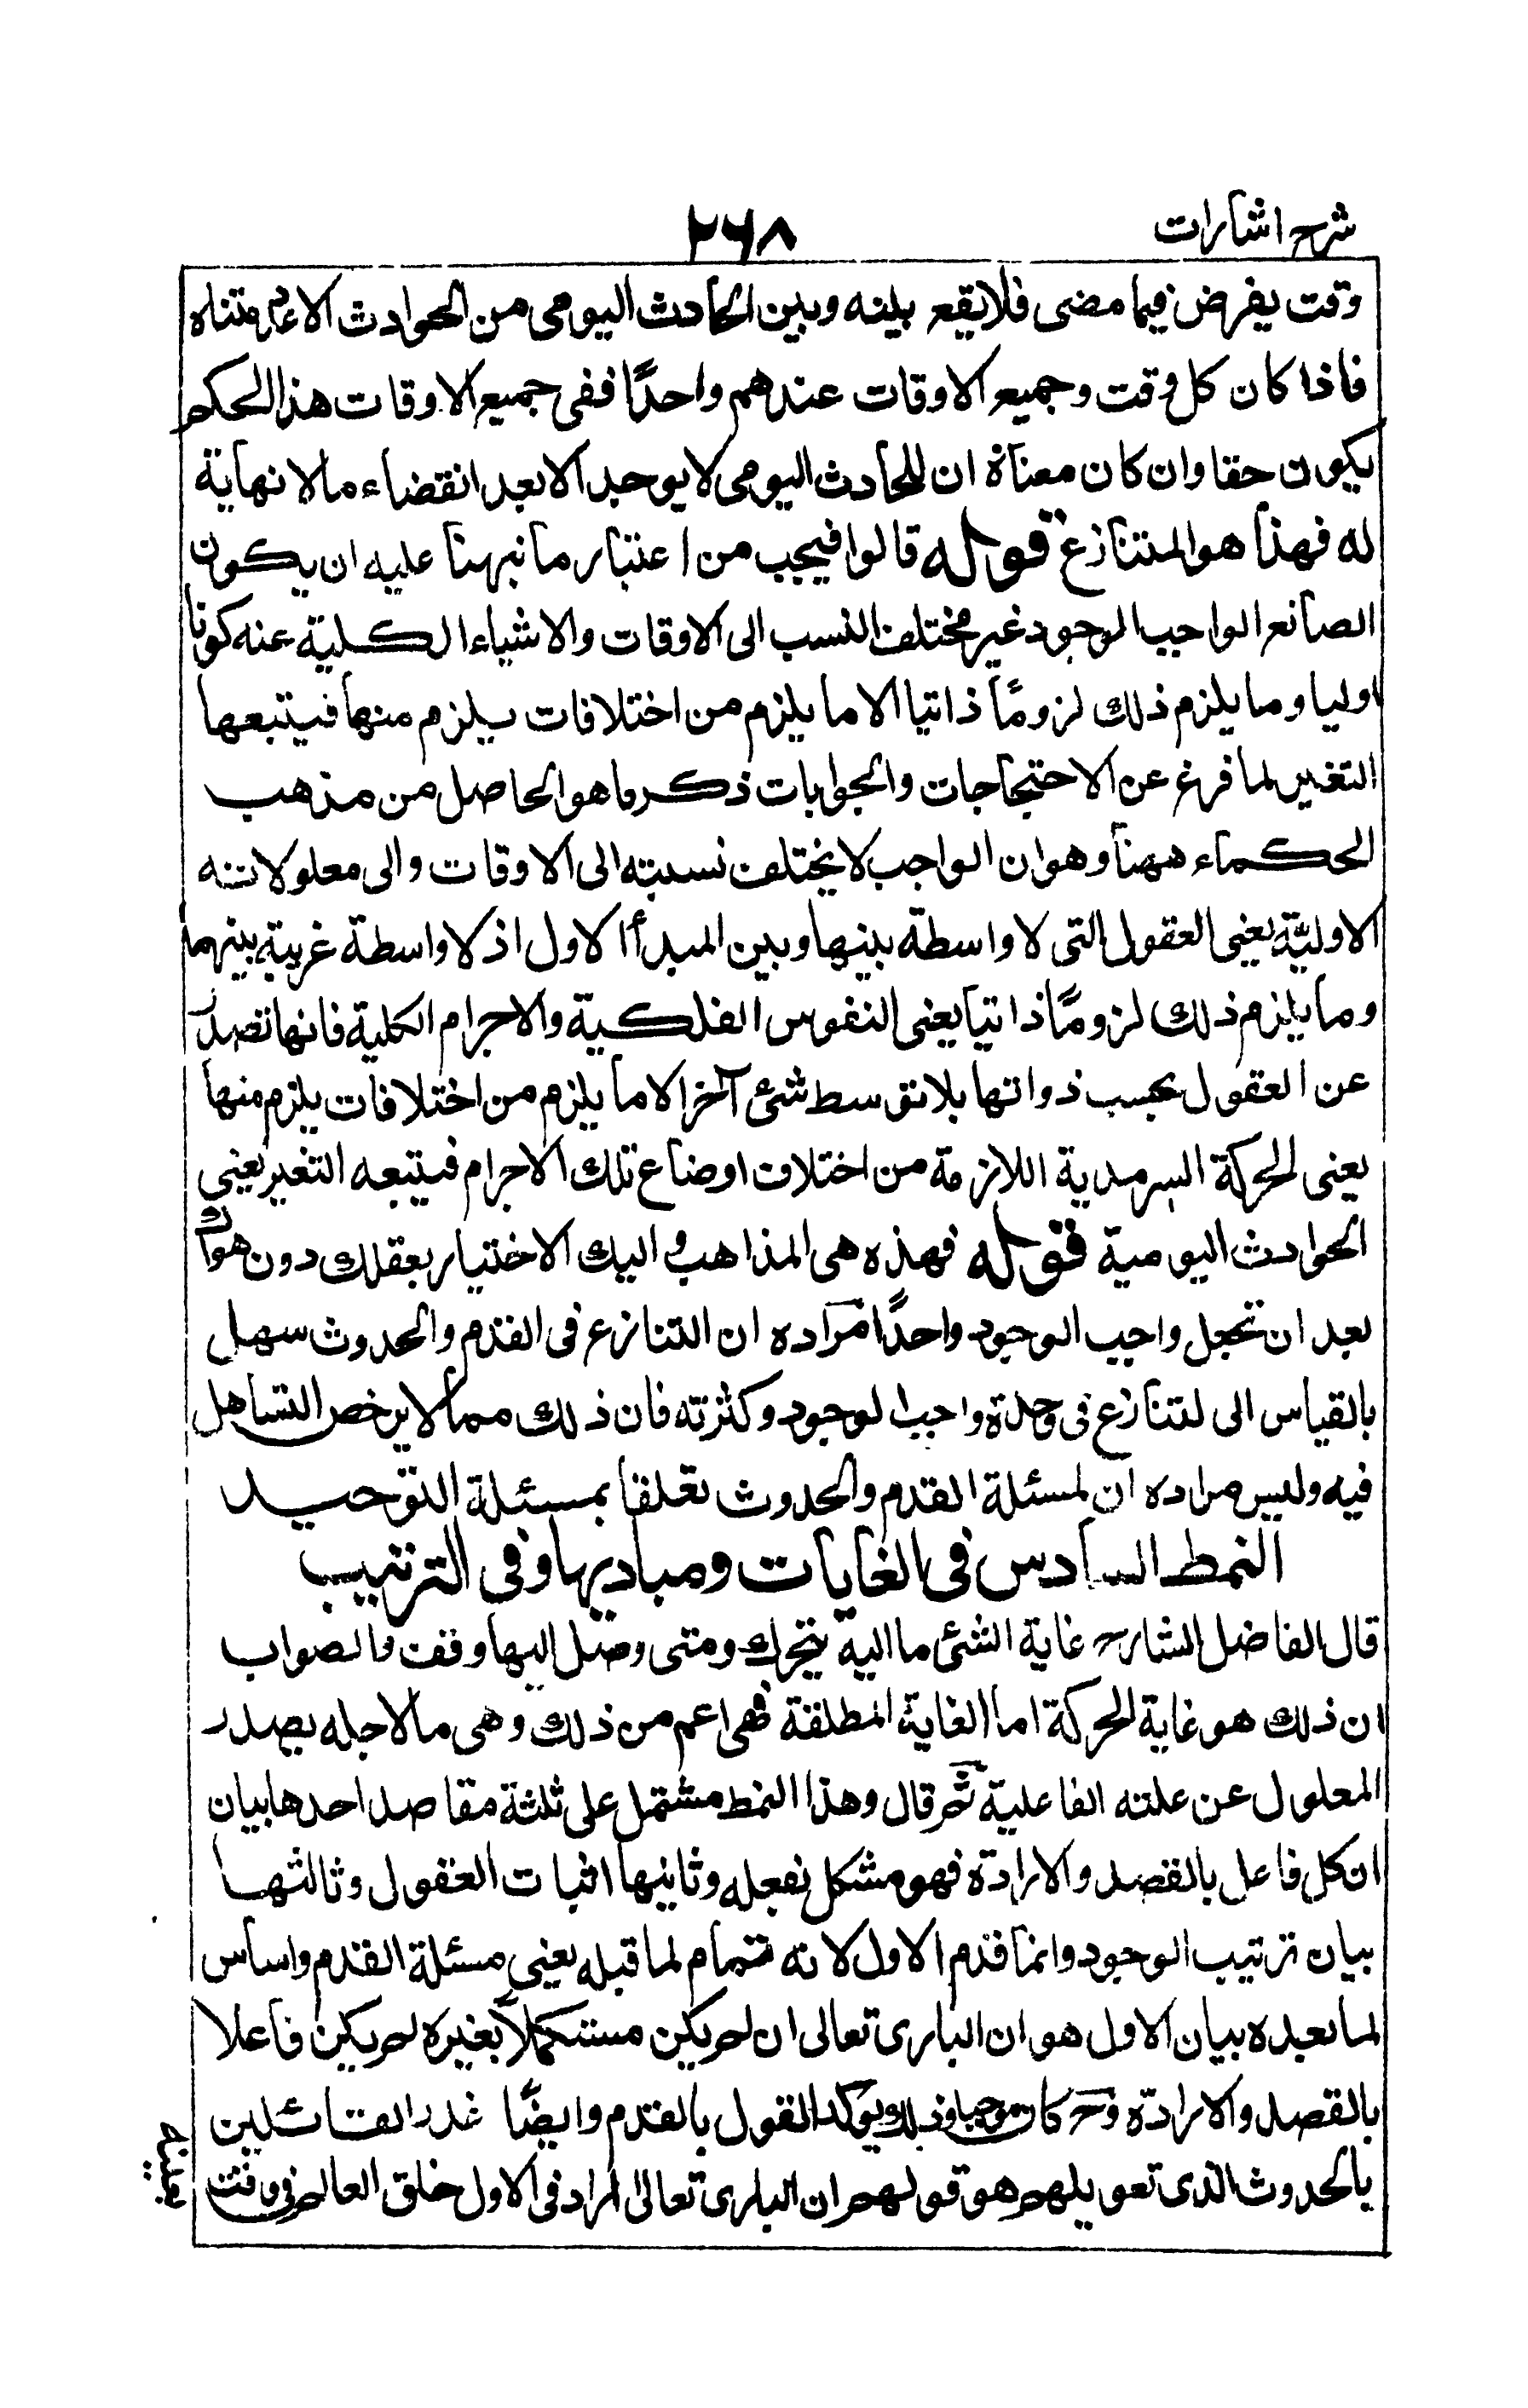 شرح اشارات
۲۶۸
وقت يفرض فيما مضى فلا يقع بينه وبين الحادث اليومى من الحوادث الا عدد متناه
فاذا كان كل وقت وجميع الاوقات عندهم واحدًا ففى جميع الاوقات هذا الحكم
يكون حقا وان كان معناه ان للحادث اليومى لا يوجد الا بعد انقضاء ما لا نهاية
له فهذا هو المتنازع قوله قالوا فيجب من اعتبار ما نبهنا عليه ان يكون
الصانع الواجب الوجود غير مختلف النسب الى الاوقات والاشياء الكلية عنه كونا
اوليا وما يلزم ذلك لزومًا ذاتيا الا ما يلزم من اختلافات يلزم منها فيتبعها
التغير لما فرغ عن الاحتجاجات والجوابات ذكر ما هو الحاصل من مذهب
الحكماء ههنا وهو ان الواجب لا يختلف نسبته الى الاوقات والى معلولاته
الاوليّة يعنى العقول التى لا واسطة بينها وبين المبدأ الاول اذ لا واسطة غريبة بينهما
وما يلزم ذلك لزومًا ذاتيا يعنى النفوس الفلكية والاجرام الكلية فانها تصدر
عن العقول بحسب ذواتها بلا توسط شئ آخر الا ما يلزم من اختلافات يلزم منها
يعنى الحركة السرمدية اللازمة من اختلاف اوضاع تلك الاجرام فيتبعه التغير يعنى
الحوادث اليومية قوله فهذه هى المذاهب واليك الاختيار بعقلك دون هواك
بعد ان تجعل واجب الوجود واحدًا مراده ان التنازع فى القدم والحدوث سهل
بالقياس الى لتنازع فى وحدة واجب الوجود وكثرته فان ذلك مما لا يرخص التساهل
فيه وليس مراده ان لمسئلة القدم والحدوث تعلقا بمسئلة التوحيد
النمط السادس فى الغايات ومباديها وفى الترتيب
قال الفاضل الشارح غاية الشئ ما اليه يتحرك ومتى وصل اليها وقف والصواب
ان ذلك هو غاية الحركة اما الغاية المطلقة فهى اعم من ذلك وهى ما لاجله يصدر
المعلول عن علته الفاعلية ثم قال وهذا النمط مشتمل على ثلثة مقاصد احدها بيان
ان كل فاعل بالقصد والارادة فهو مشكل بفعله وثانيها اثبات العقول وثالثها
بيان ترتيب الوجود وانما قدم الاول لانه تمام لما قبله يعنى مسئلة القدم واساس
لما بعده بيان الاول هو ان البارى تعالى ان لم يكن مستكملاً بغيره لم يكن فاعلا
بالقصد والارادة وح كان موجبا وذلك يوكد القول بالقدم وايضًا غدر القائلين
بالحدوث الذى تعويلهم هو قولهم ان البارى تعالى اراد فى الاول خلق العالم فى وقت